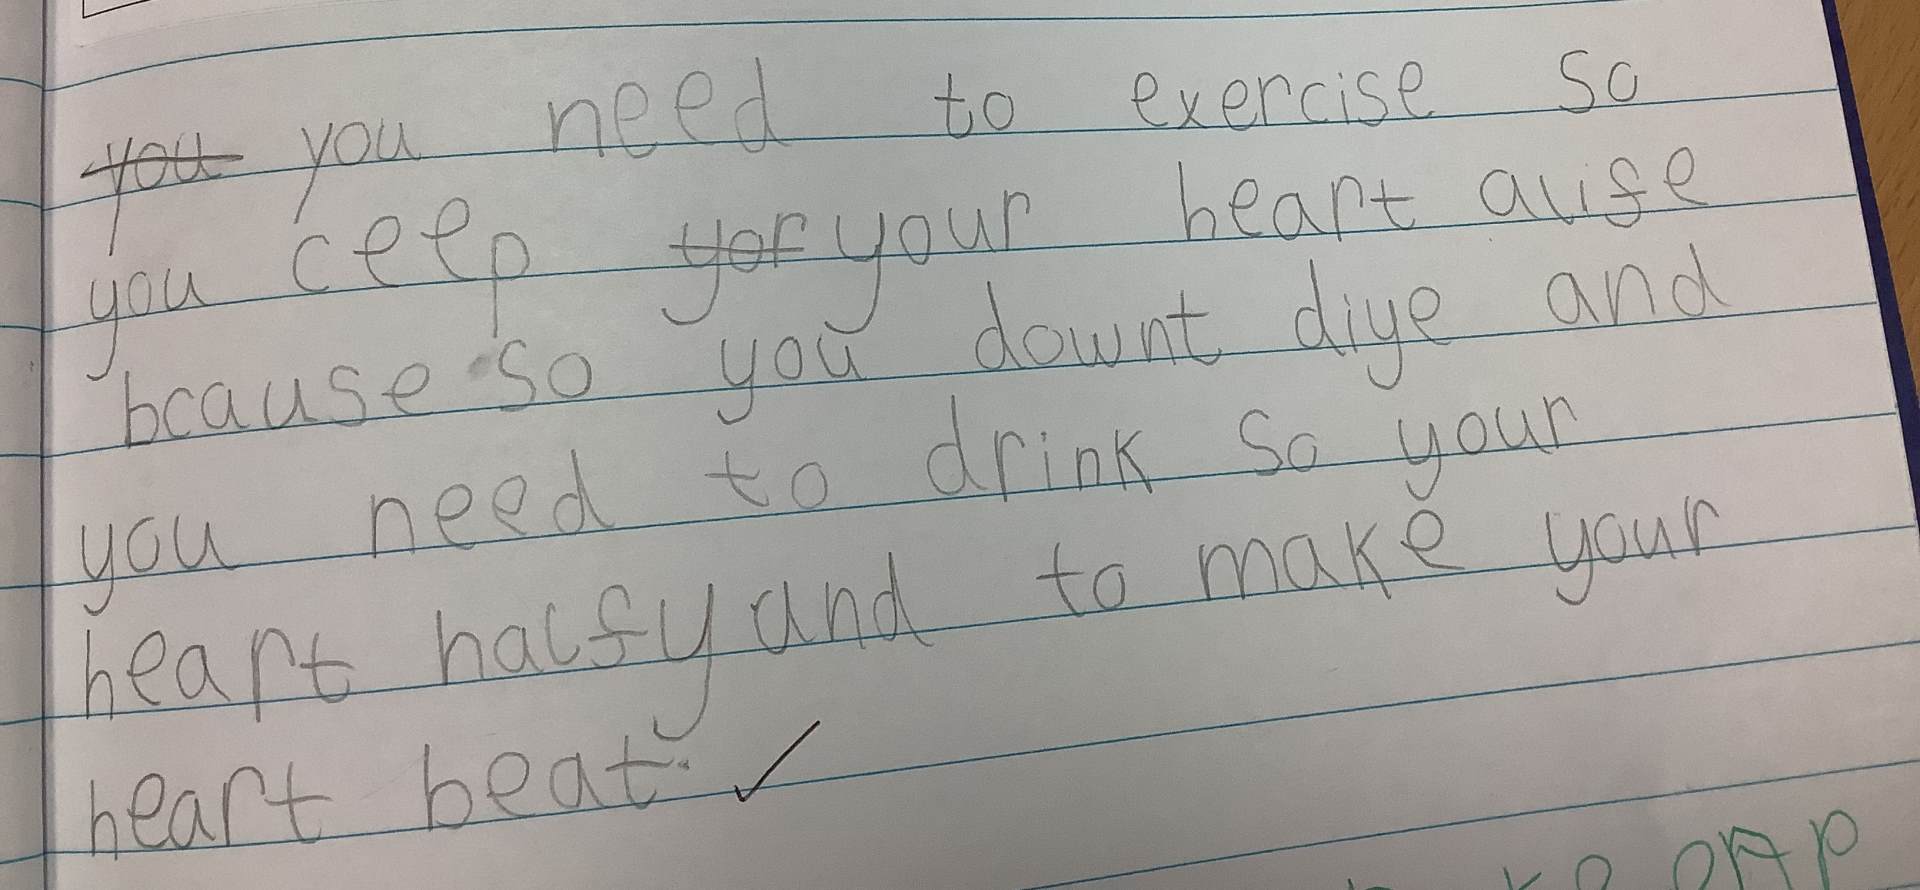 you you need to exercise so
you ceep yor your heart alife
bcause so you downt diye and
you need to drink so your
heart halfy and to make your
heart beat.